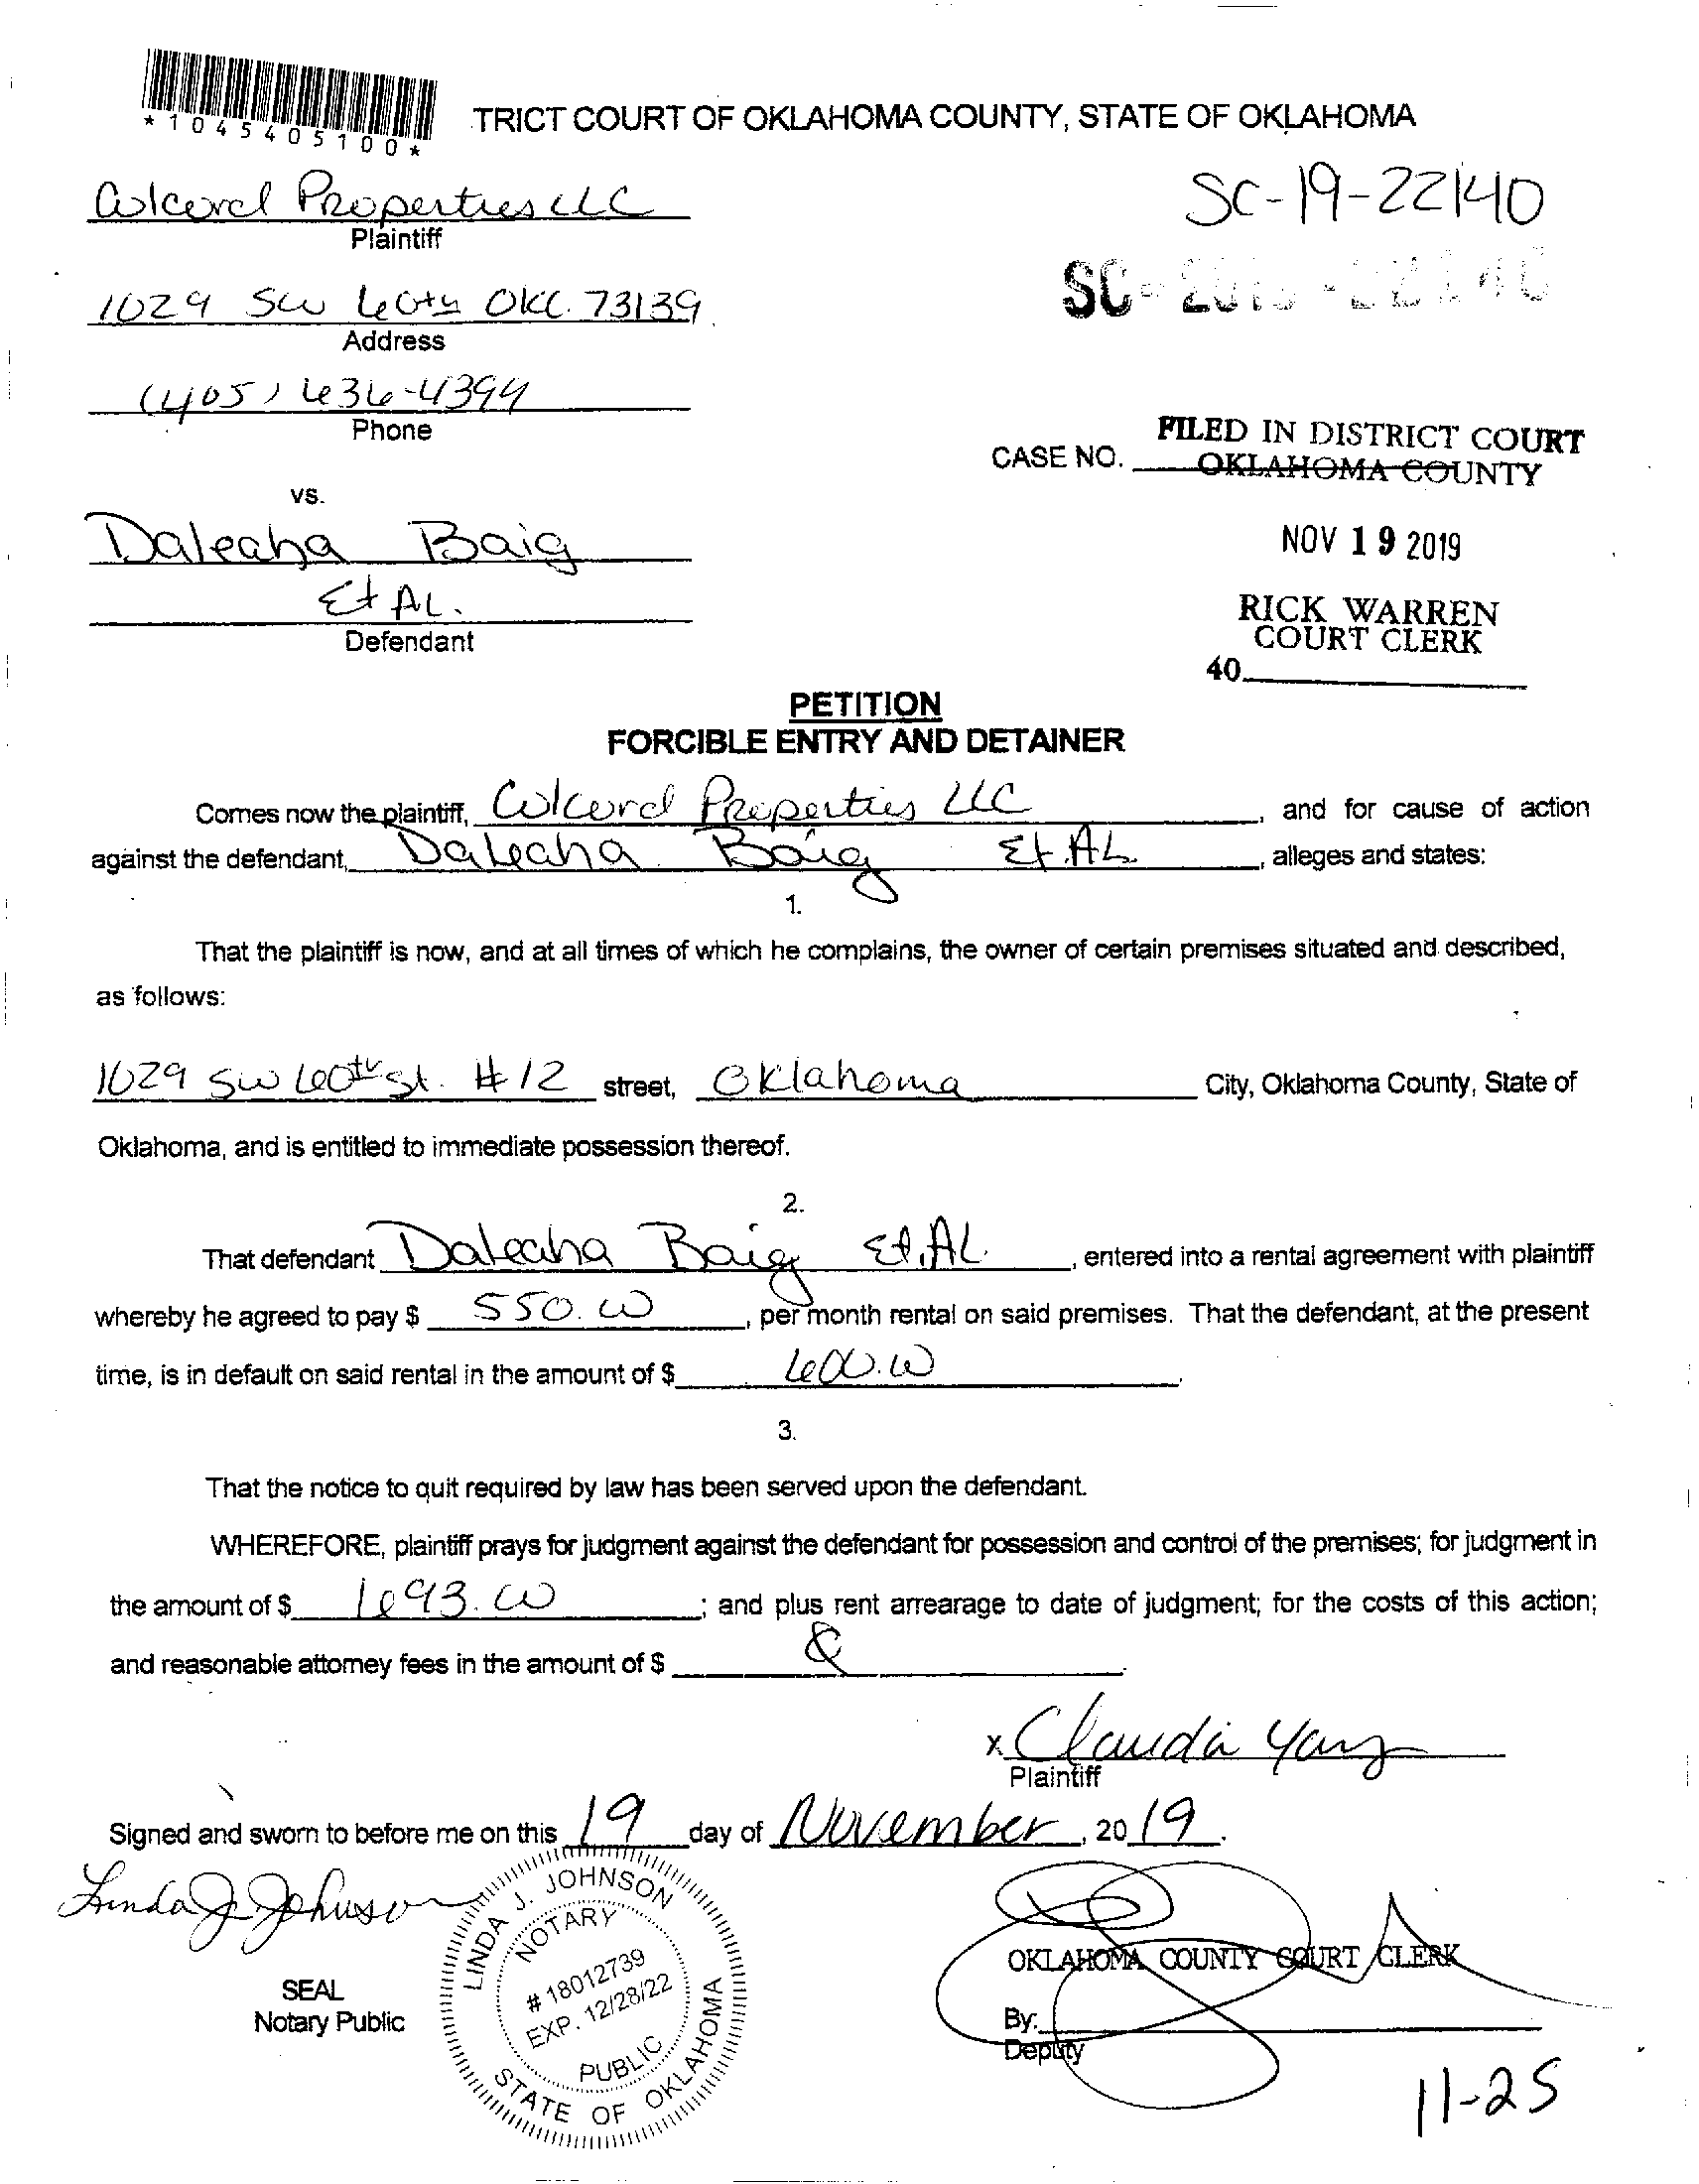 *1045405100*
TRICT COURT OF OKLAHOMA COUNTY, STATE OF OKLAHOMA
Colcord Properties LLC
Plaintiff
SC-19-22140
SC-
1029 SW 60th OKC. 73139
Address
(405) 636-4394
Phone
FILED IN DISTRICT COURT
CASE NO. OKLAHOMA COUNTY
vs.
Daleaha Baig
NOV 19 2019
Et AL.
Defendant
RICK WARREN
COURT CLERK
40
PETITION
FORCIBLE ENTRY AND DETAINER
Comes now the plaintiff, Colcord Properties LLC, and for cause of action
against the defendant, Daleaha Baig Et.AL, alleges and states:
1.
That the plaintiff is now, and at all times of which he complains, the owner of certain premises situated and described,
as follows:
1029 SW 60th St. #12 street, Oklahoma City, Oklahoma County, State of
Oklahoma, and is entitled to immediate possession thereof.
2.
That defendant Daleaha Baig Et.AL., entered into a rental agreement with plaintiff
whereby he agreed to pay $ 550.00, per month rental on said premises. That the defendant, at the present
time, is in default on said rental in the amount of $ 600.00.
3.
That the notice to quit required by law has been served upon the defendant.
WHEREFORE, plaintiff prays for judgment against the defendant for possession and control of the premises; for judgment in
the amount of $ 693.00; and plus rent arrearage to date of judgment; for the costs of this action;
and reasonable attorney fees in the amount of $
x Claudia Yanz
Plaintiff
Signed and sworn to before me on this 19 day of November, 2019.
Linda J Johnson
SEAL
Notary Public
LINDA J. JOHNSON
NOTARY
# 18012739
EXP. 12/28/22
PUBLIC
STATE OF OKLAHOMA
OKLAHOMA COUNTY COURT CLERK
By:
Deputy
11-25